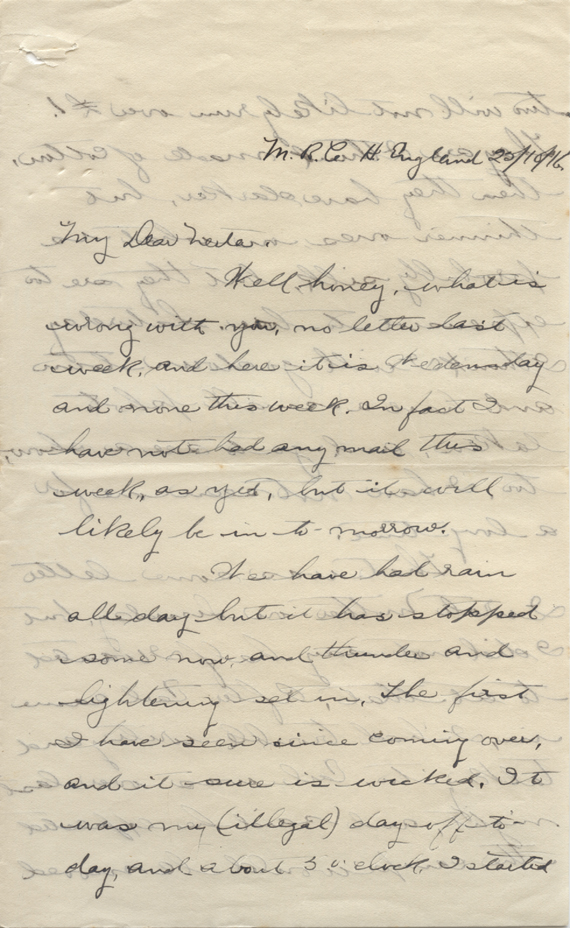 M. R. Co. H. England 25/10/16
My Dear
Well honey, what is
wrong with you, no letter last
week, and here it is Wedensday
and none this week. In fact I
have note had any mail this
week, as yet, but it will
likely be in to-morrow.
We have had rain
all day but it has stopped
some now, and thunder and
lightening set in, The first
I have seen since coming over,
and it sure is wicked. It
was my (illegal) days off to-
day, and about 5 o'clock I started